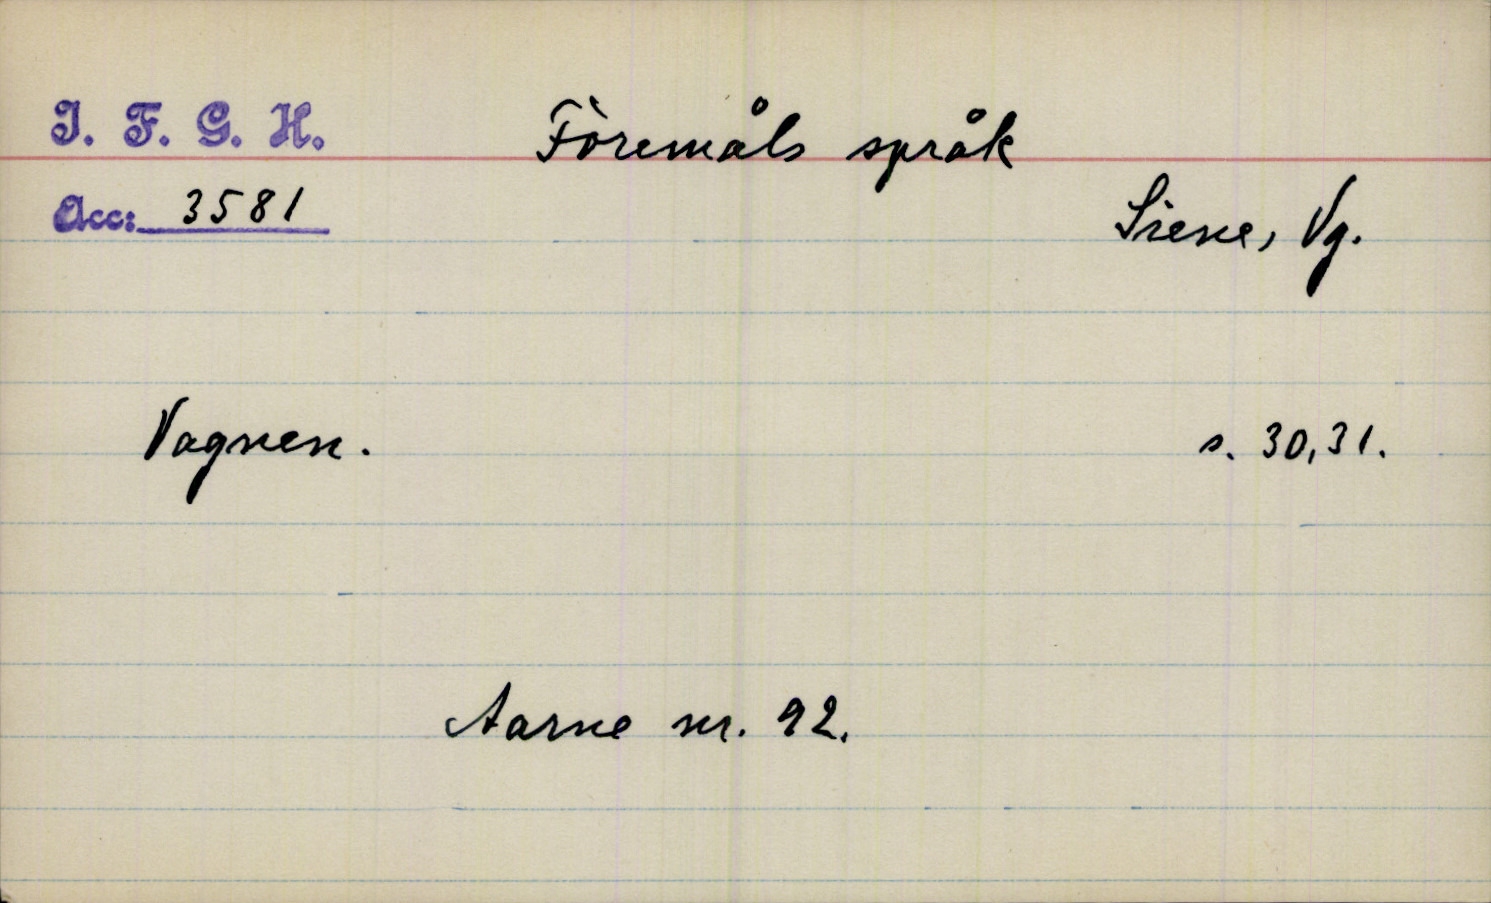 I. F. G. H.
Föremåls språk
Acc: 3581
Siene, Vg.
Vagnen. s. 30,31.
Aarne nr. 92.